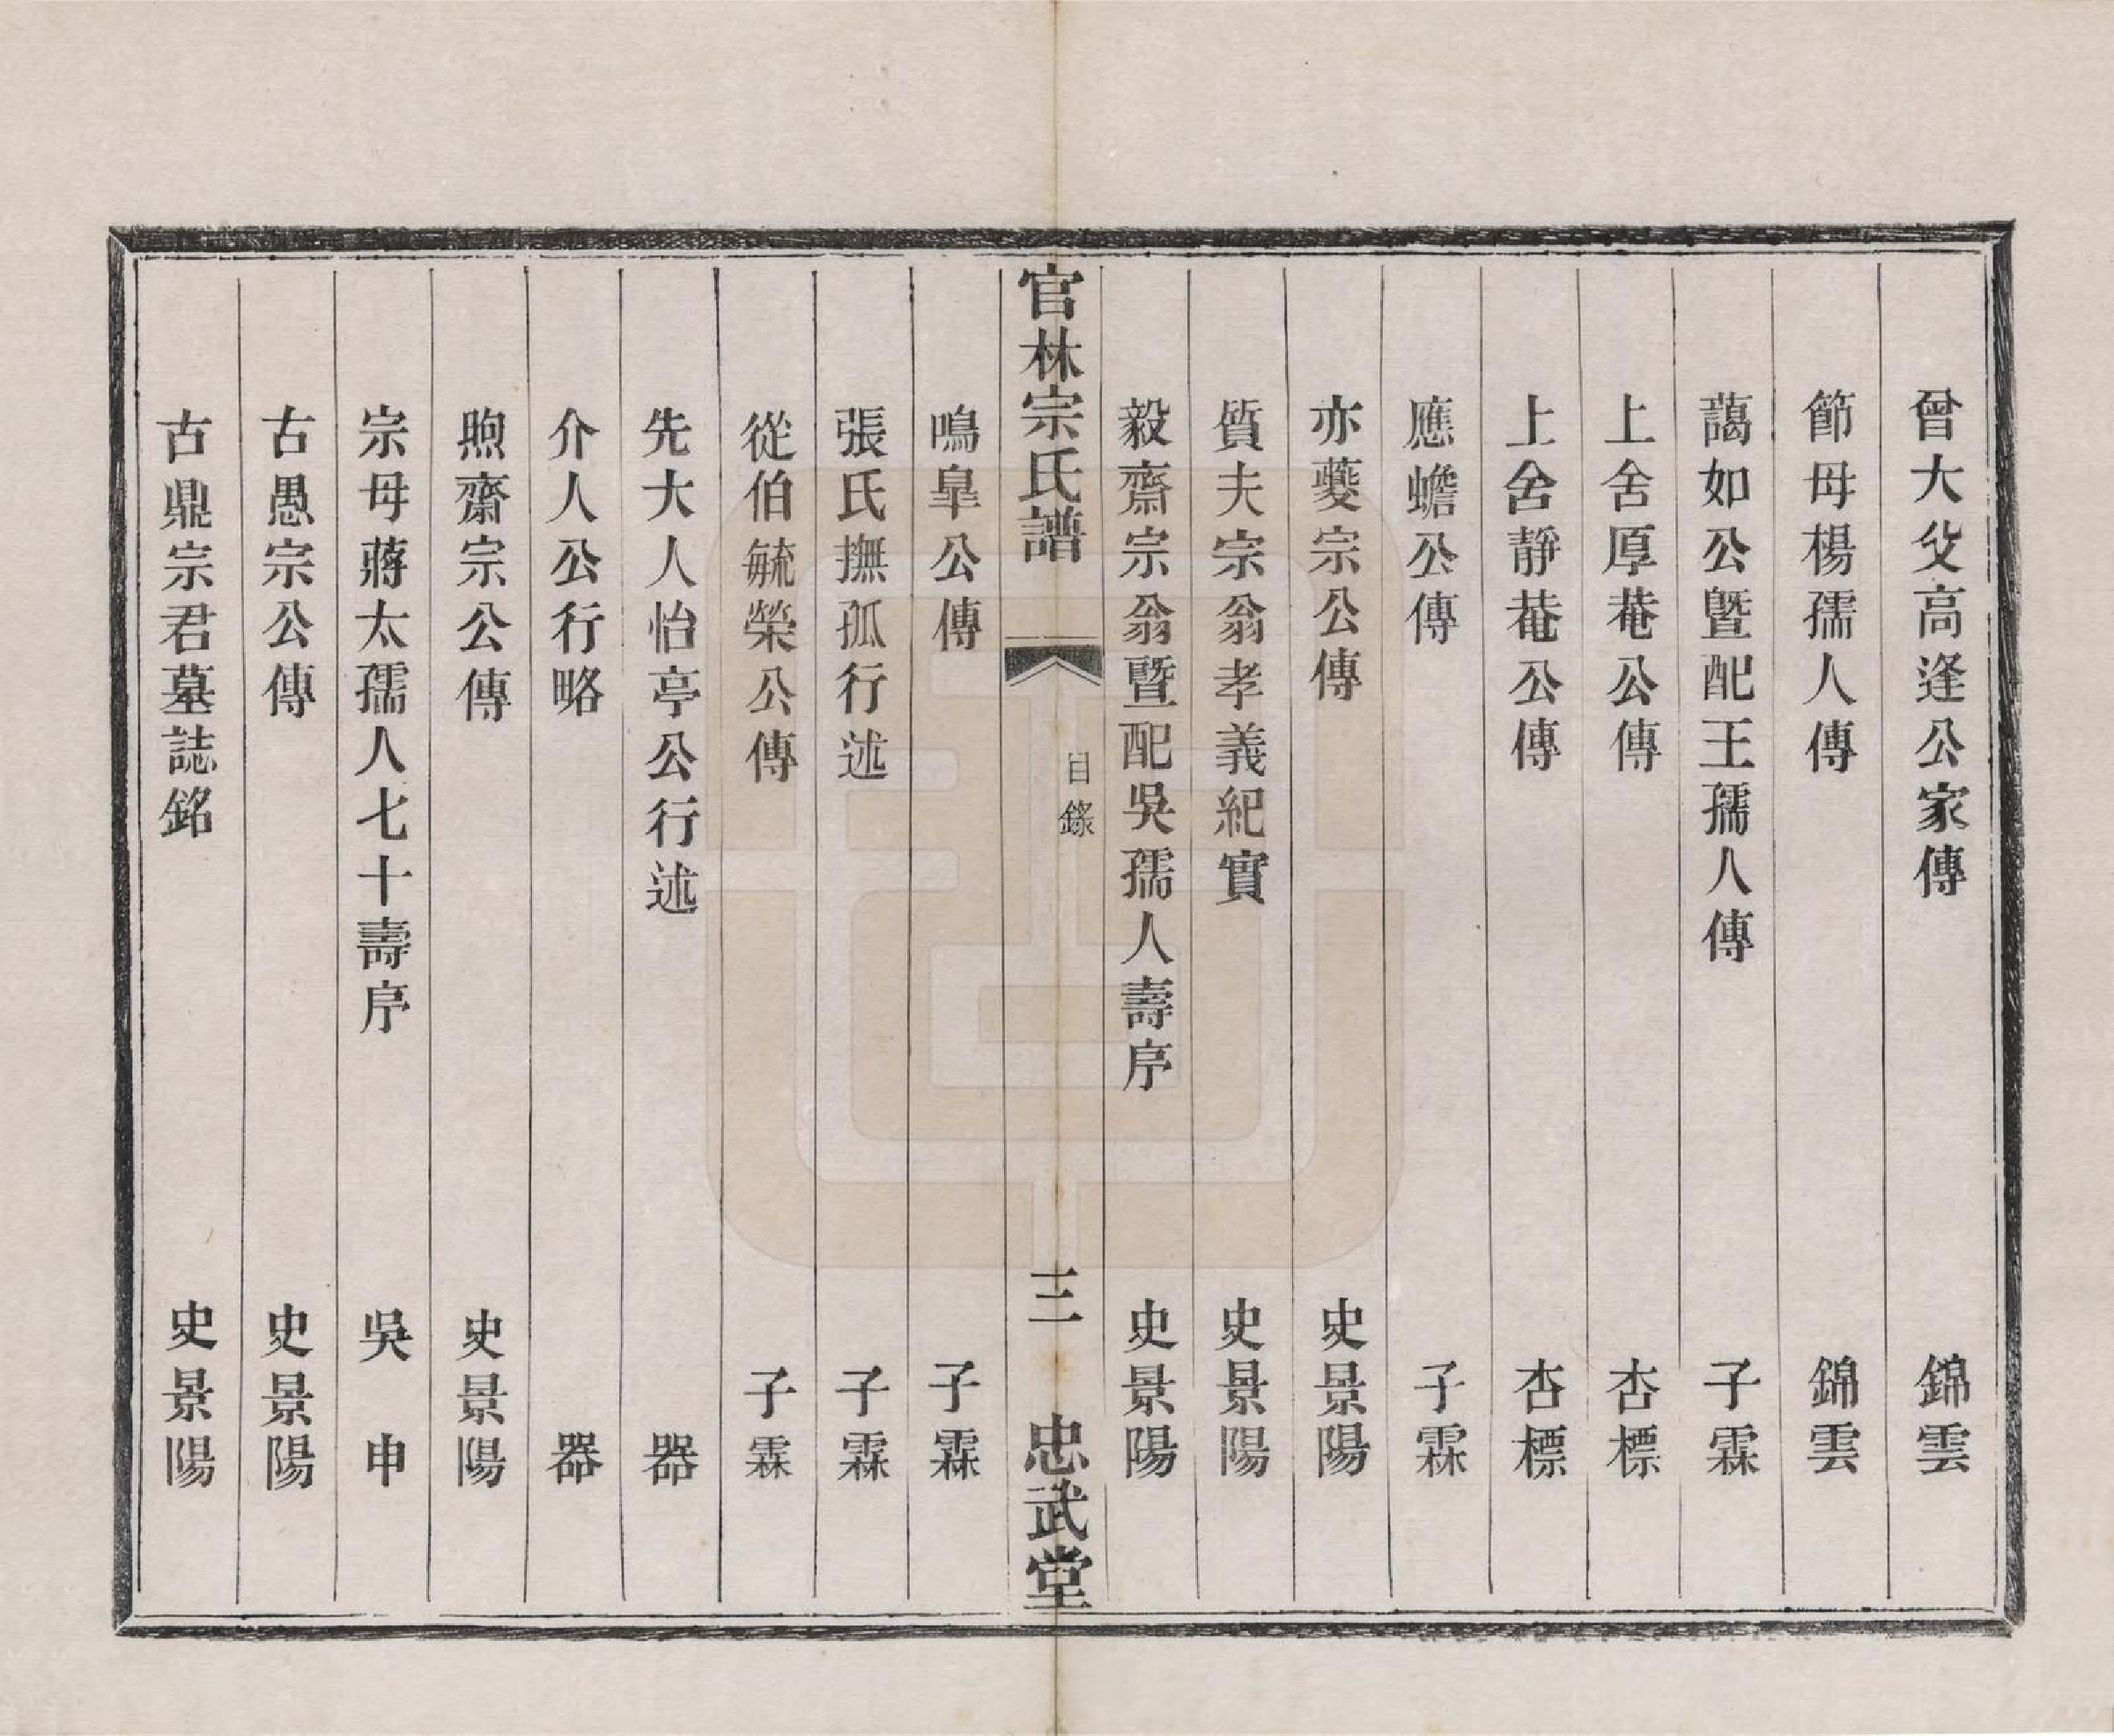 曾大父高逢公家傳　錦雲
節母楊孺人傳　錦雲
藹如公暨配王孺人傳　子霖
上舍厚菴公傳　杏標
上舍靜菴公傳　杏標
應蟾公傳　子霖
亦夔宗公傳　史景陽
質夫宗翁孝義紀實　史景陽
毅齋宗翁暨配吳孺人壽序　史景陽
官林宗氏譜　目錄　三　忠武堂
鳴臯公傳　子霖
張氏撫孤行述　子霖
從伯毓榮公傳　子霖
先大人怡亭公行述　器
介人公行略　器
煦齋宗公傳　史景陽
宗母蔣太孺人七十壽序　吳申
古愚宗公傳　史景陽
古鼎宗君墓誌銘　史景陽